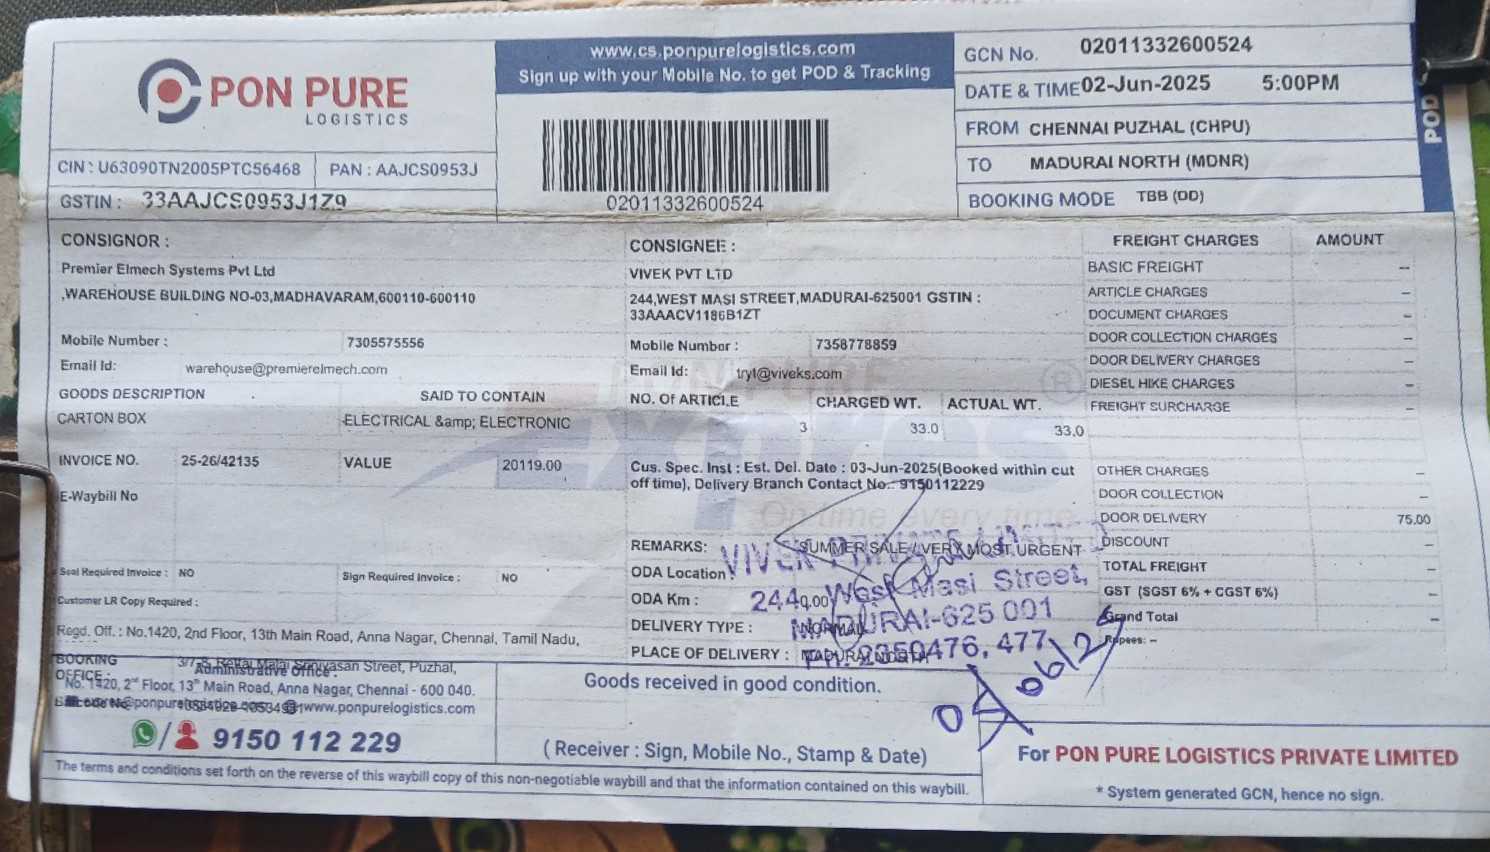 PON PURE
LOGISTICS
www.cs.ponpurelogistics.com
Sign up with your Mobile No. to get POD & Tracking
GCN No. 02011332600524
DATE & TIME 02-Jun-2025 5:00PM
FROM CHENNAI PUZHAL (CHPU)
TO MADURAI NORTH (MDNR)
BOOKING MODE TBB (DD)
POD
CIN : U63090TN2005PTC56468 PAN : AAJCS0953J
GSTIN : 33AAJCS0953J1Z9
02011332600524
CONSIGNOR :
Premier Elmech Systems Pvt Ltd
,WAREHOUSE BUILDING NO-03,MADHAVARAM,600110-600110
Mobile Number : 7305575556
Email Id: warehouse@premierelmech.com
CONSIGNEE :
VIVEK PVT LTD
244,WEST MASI STREET,MADURAI-625001 GSTIN :
33AAACV1186B1ZT
Mobile Number : 7358778859
Email Id: tryt@viveks.com
GOODS DESCRIPTION SAID TO CONTAIN
CARTON BOX ELECTRICAL &amp; ELECTRONIC
NO. Of ARTICLE CHARGED WT. ACTUAL WT.
3 33.0 33.0
INVOICE NO. 25-26/42135 VALUE 20119.00
E-Waybill No
Cus. Spec. Inst : Est. Del. Date : 03-Jun-2025(Booked within cut
off time), Delivery Branch Contact No.: 9150112229
PON PURE
Expres
On time every time
REMARKS: SUMMER SALE / VERY MOST URGENT
ODA Location :
ODA Km : 0.00
DELIVERY TYPE : NORMAL
PLACE OF DELIVERY : MADURAI NORTH
VIVEK PRIVATE LIMITED
244, West Masi Street,
MADURAI-625 001
Ph: 2350476, 477
Seal Required Invoice : NO Sign Required Invoice : NO
Customer LR Copy Required :
Regd. Off. : No.1420, 2nd Floor, 13th Main Road, Anna Nagar, Chennai, Tamil Nadu,
BOOKING
OFFICE :
Administrative Office :
No. 1420, 2nd Floor, 13th Main Road, Anna Nagar, Chennai - 600 040.
www.ponpurelogistics.com
9150 112 229
FREIGHT CHARGES AMOUNT
BASIC FREIGHT --
ARTICLE CHARGES --
DOCUMENT CHARGES --
DOOR COLLECTION CHARGES --
DOOR DELIVERY CHARGES --
DIESEL HIKE CHARGES --
FREIGHT SURCHARGE --
OTHER CHARGES --
DOOR COLLECTION --
DOOR DELIVERY 75.00
DISCOUNT --
TOTAL FREIGHT --
GST (SGST 6% + CGST 6%) --
Grand Total --
Rupees: --
Goods received in good condition.
(Receiver : Sign, Mobile No., Stamp & Date)
For PON PURE LOGISTICS PRIVATE LIMITED
* System generated GCN, hence no sign.
The terms and conditions set forth on the reverse of this waybill copy of this non-negotiable waybill and that the information contained on this waybill.